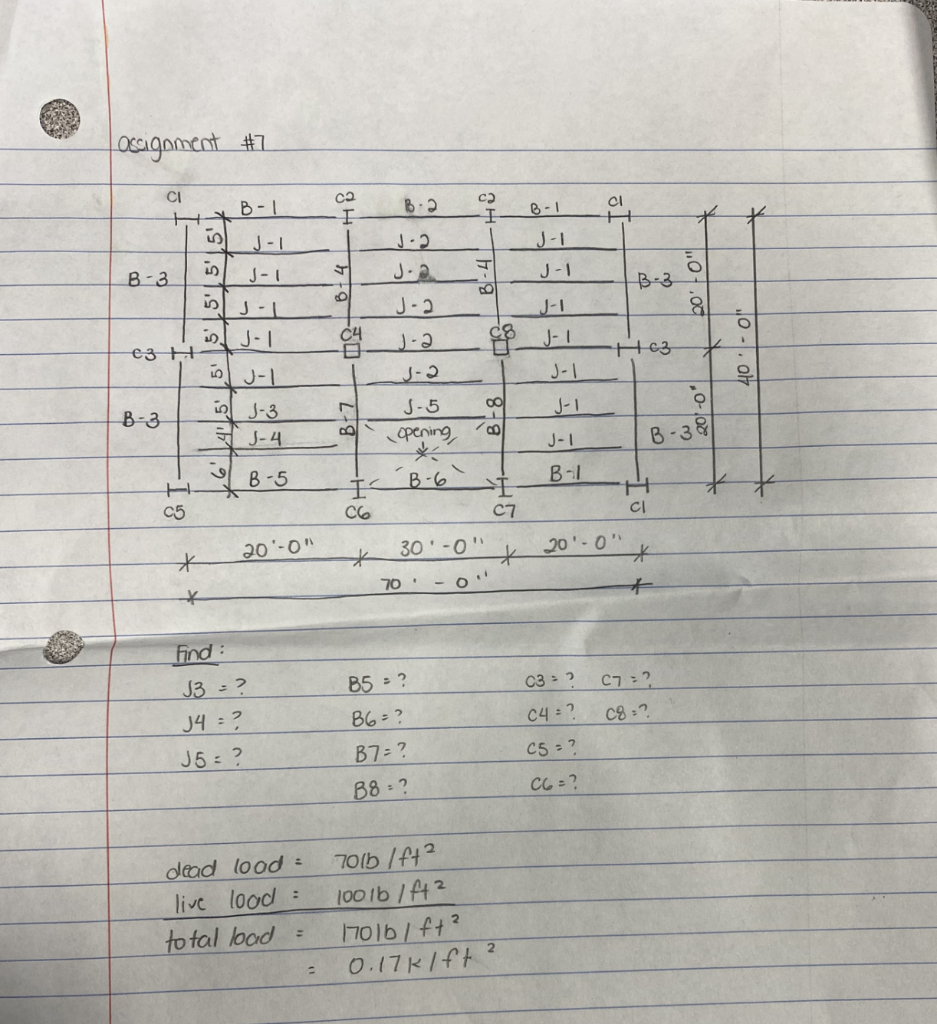 assignment #7
C1 B-1 C2 B-2 C2 B-1 C1
5' J-1 J-2 J-1
B-3 5' J-1 B-4 J-2 B-4 J-1 B-3 20'-0"
5' J-1 J-2 J-1
5' J-1 C4 J-2 C8 J-1 40'-0"
C3 C3
5' J-1 J-2 J-1
B-3 5' J-3 B-7 J-5 B-8 J-1 B-3 20'-0"
4' J-4 opening J-1
6' B-5 B-6 B-1
C5 C6 C7 C1
20'-0" 30'-0" 20'-0"
70'-0"
Find:
J3 = ? B5 = ? C3 = ? C7 = ?
J4 = ? B6 = ? C4 = ? C8 = ?
J5 = ? B7 = ? C5 = ?
B8 = ? C6 = ?
dead load = 70lb/ft²
live load = 100lb/ft²
total load = 170lb/ft²
= 0.17k/ft²